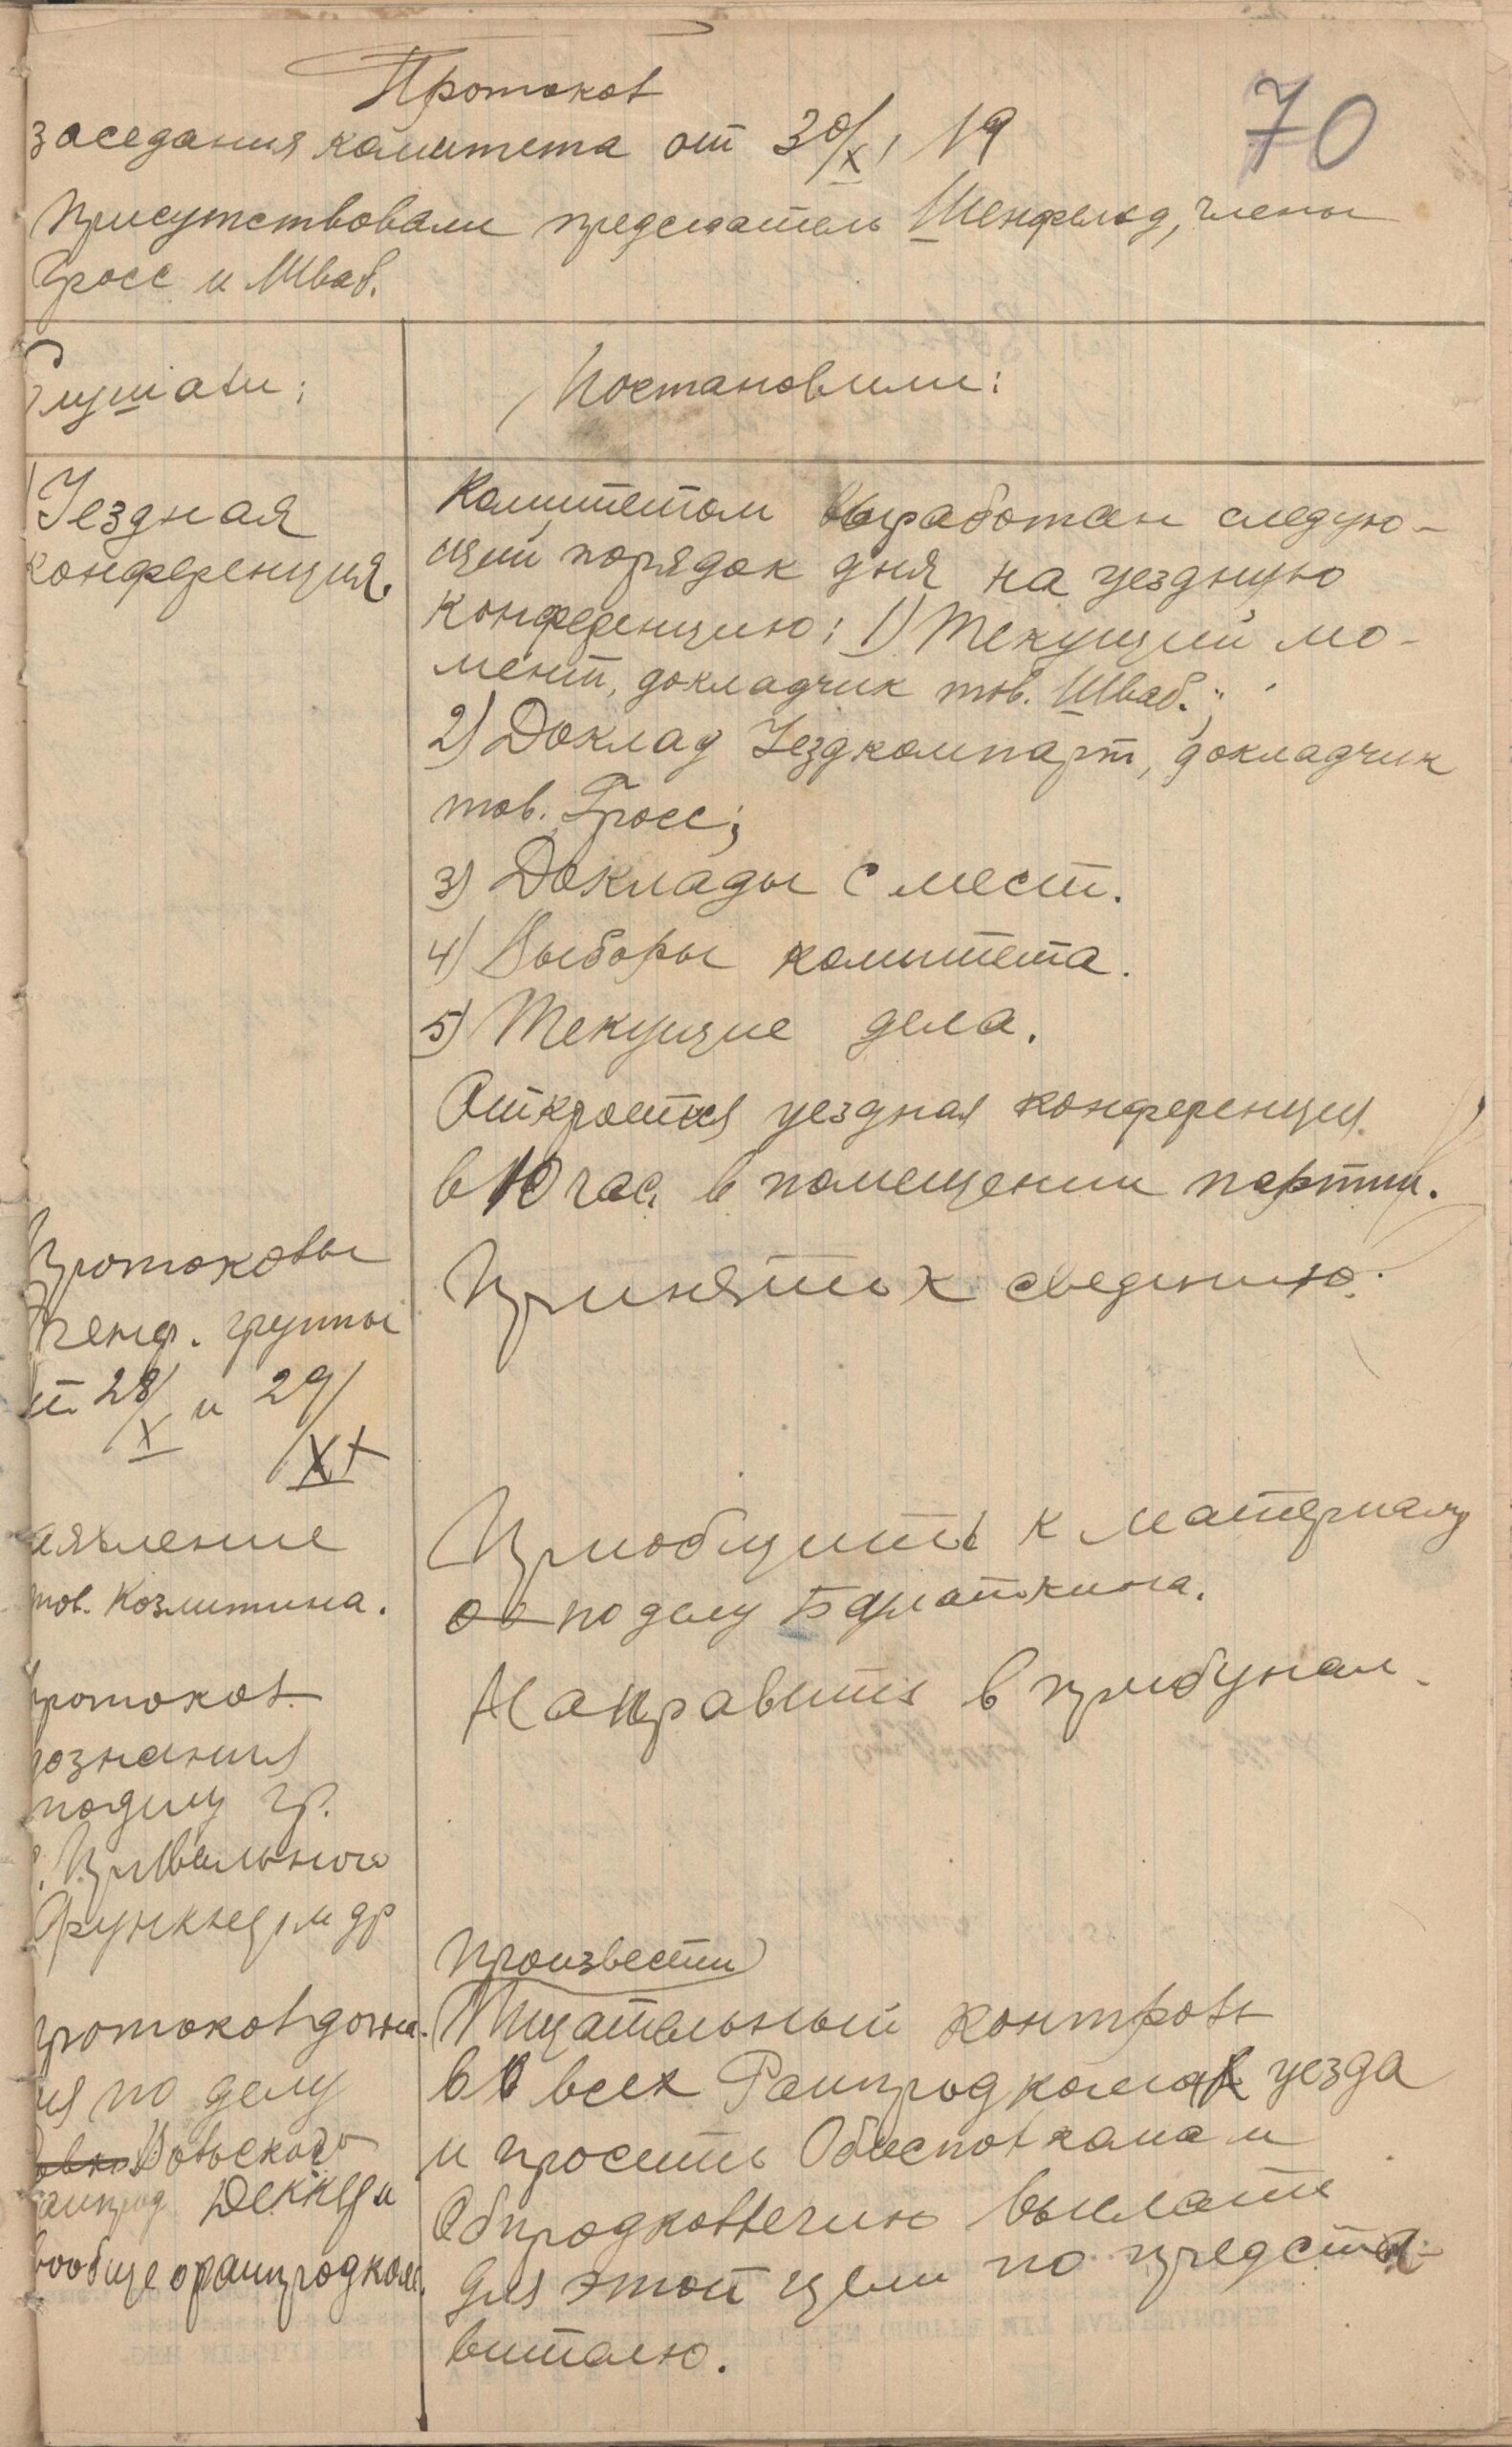 Протокол
70
заседания комитета от 30/XI 19
Присутствовали председатель Шенфельд, члены
Гросс и Шваб.
Слушали:
Постановили:
Уездная
конференция.
Комитетом выработан следую-
щий порядок дня на уездную
конференцию: 1) Текущий мо-
мент, докладчик тов. Шваб.;
2) Доклад Уездкомпарт, докладчик
тов. Гросс;
3) Доклады с мест.
4) Выборы комитета.
5) Текущие дела.
Откроется уездная конференция
в 10 час. в помещении партии.
Протоколы
группы
от 28/X и 29/XI
Принять к сведению.
аявление
тов. Козлитина.
Приобщить к материалу
по делу
ротокол
дознания
по делу гр.
Привального
и др
Направить в трибунал.
ротокол дозна-
ия по делу
Вольского
Деккера
вообще о райпродком.
Произвести
Тщательный контроль
во всех Райпродкомах уезда
и просить Обисполкома и
Обпродколлегию выслать
для этой цели по предста-
вителю.